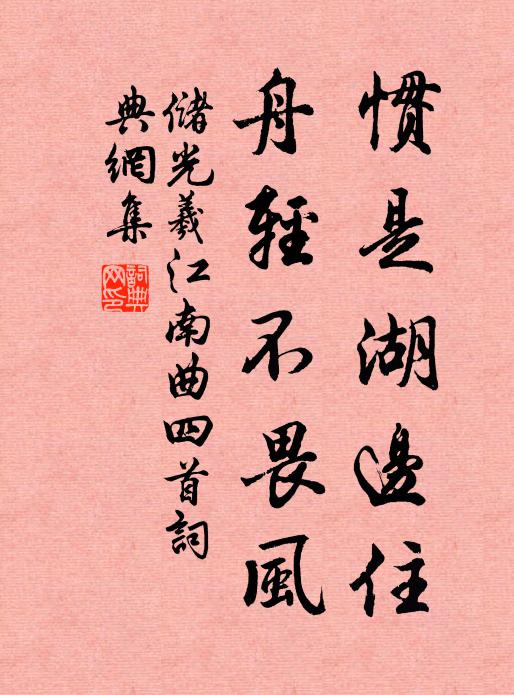 慣是湖邊住
舟輕不畏風
儲光羲江南曲四首詞
典網集
詞典網印